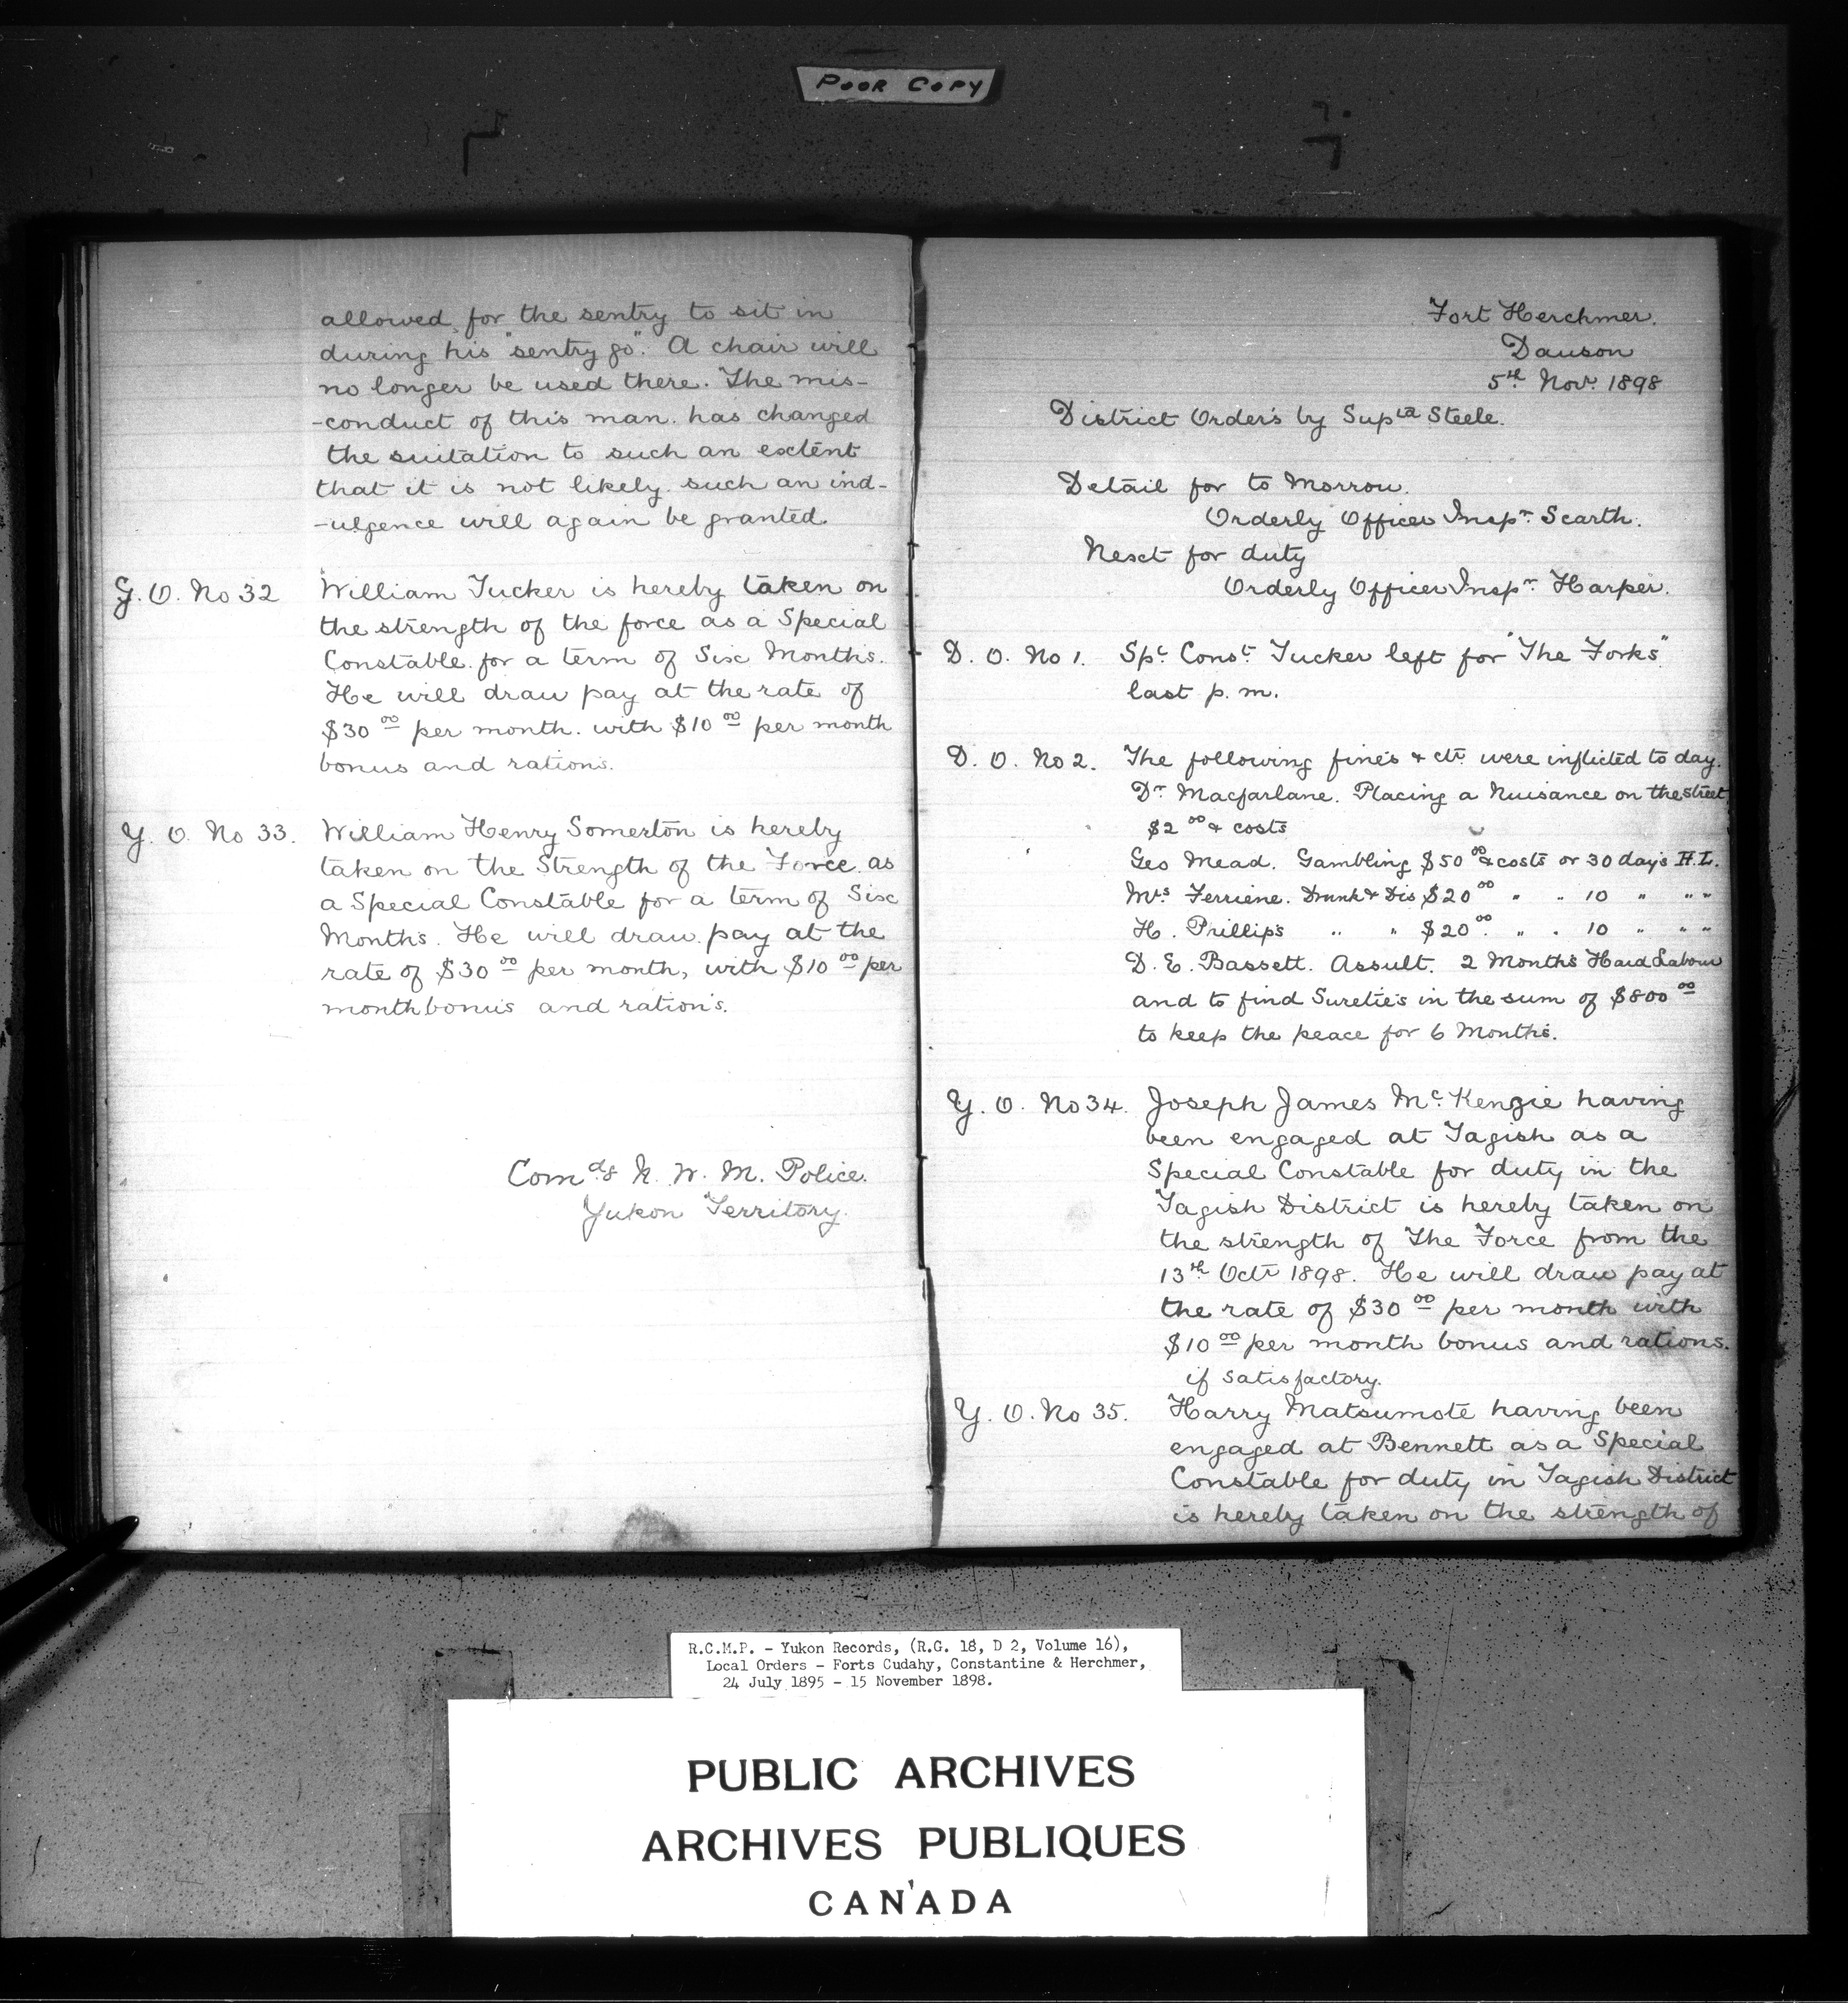 POOR COPY
allowed for the sentry to sit in
during his "sentry go". A chair will
no longer be used there. The mis-
-conduct of this man has changed
the suitation to such an extent
that it is not likely such an ind-
-ulgence will again be granted.
Y. O. No 32 William Tucker is hereby taken on
the strength of the force as a Special
Constable for a term of Six Months.
He will draw pay at the rate of
$30 00 per month. with $10 00 per month
bonus and rations.
Y. O. No 33. William Henry Somerton is hereby
taken on the Strength of the Force as
a Special Constable for a term of Six
Months. He will draw pay at the
rate of $30 00 per month, with $10 00 per
month bonus and rations.
Comdg N. W. M. Police.
Yukon Territory.
Fort Herchmer.
Dawson
5th Nov. 1898
District Orders by Supt Steele.
Detail for to Morrow.
Orderly Officer Inspr. Scarth.
Next for duty
Orderly Officer Inspr. Harper.
D. O. No 1. Spl. Const. Tucker left for "The Forks"
last p.m.
D. O. No 2. The following fines & ctr were inflicted to day.
Dr Macfarlane. Placing a Nuisance on the street
$2 00 & costs
Geo Mead. Gambling $50 00 & costs or 30 days H.L.
Mrs Ferriene. Drunk & Dis $20 00 " " 10 " " "
H. Prillips " " $20 00. " " 10 " " "
D. E. Bassett. Assult. 2 Months Hard Labour
and to find Sureties in the sum of $800 00
to keep the peace for 6 Months.
Y. O. No 34. Joseph James Mc. Kenzie having
been engaged at Tagish as a
Special Constable for duty in the
Tagish District is hereby taken on
the strength of The Force from the
13th Octr 1898. He will draw pay at
the rate of $30 00 per month with
$10 00 per month bonus and rations.
if satisfactory.
Y. O. No 35. Harry Matsumote having been
engaged at Bennett as a Special
Constable for duty in Tagish District
is hereby taken on the strength of
R.C.M.P. - Yukon Records, (R.G. 18, D 2, Volume 16),
Local Orders - Forts Cudahy, Constantine & Herchmer,
24 July 1895 - 15 November 1898.
PUBLIC ARCHIVES
ARCHIVES PUBLIQUES
CANADA